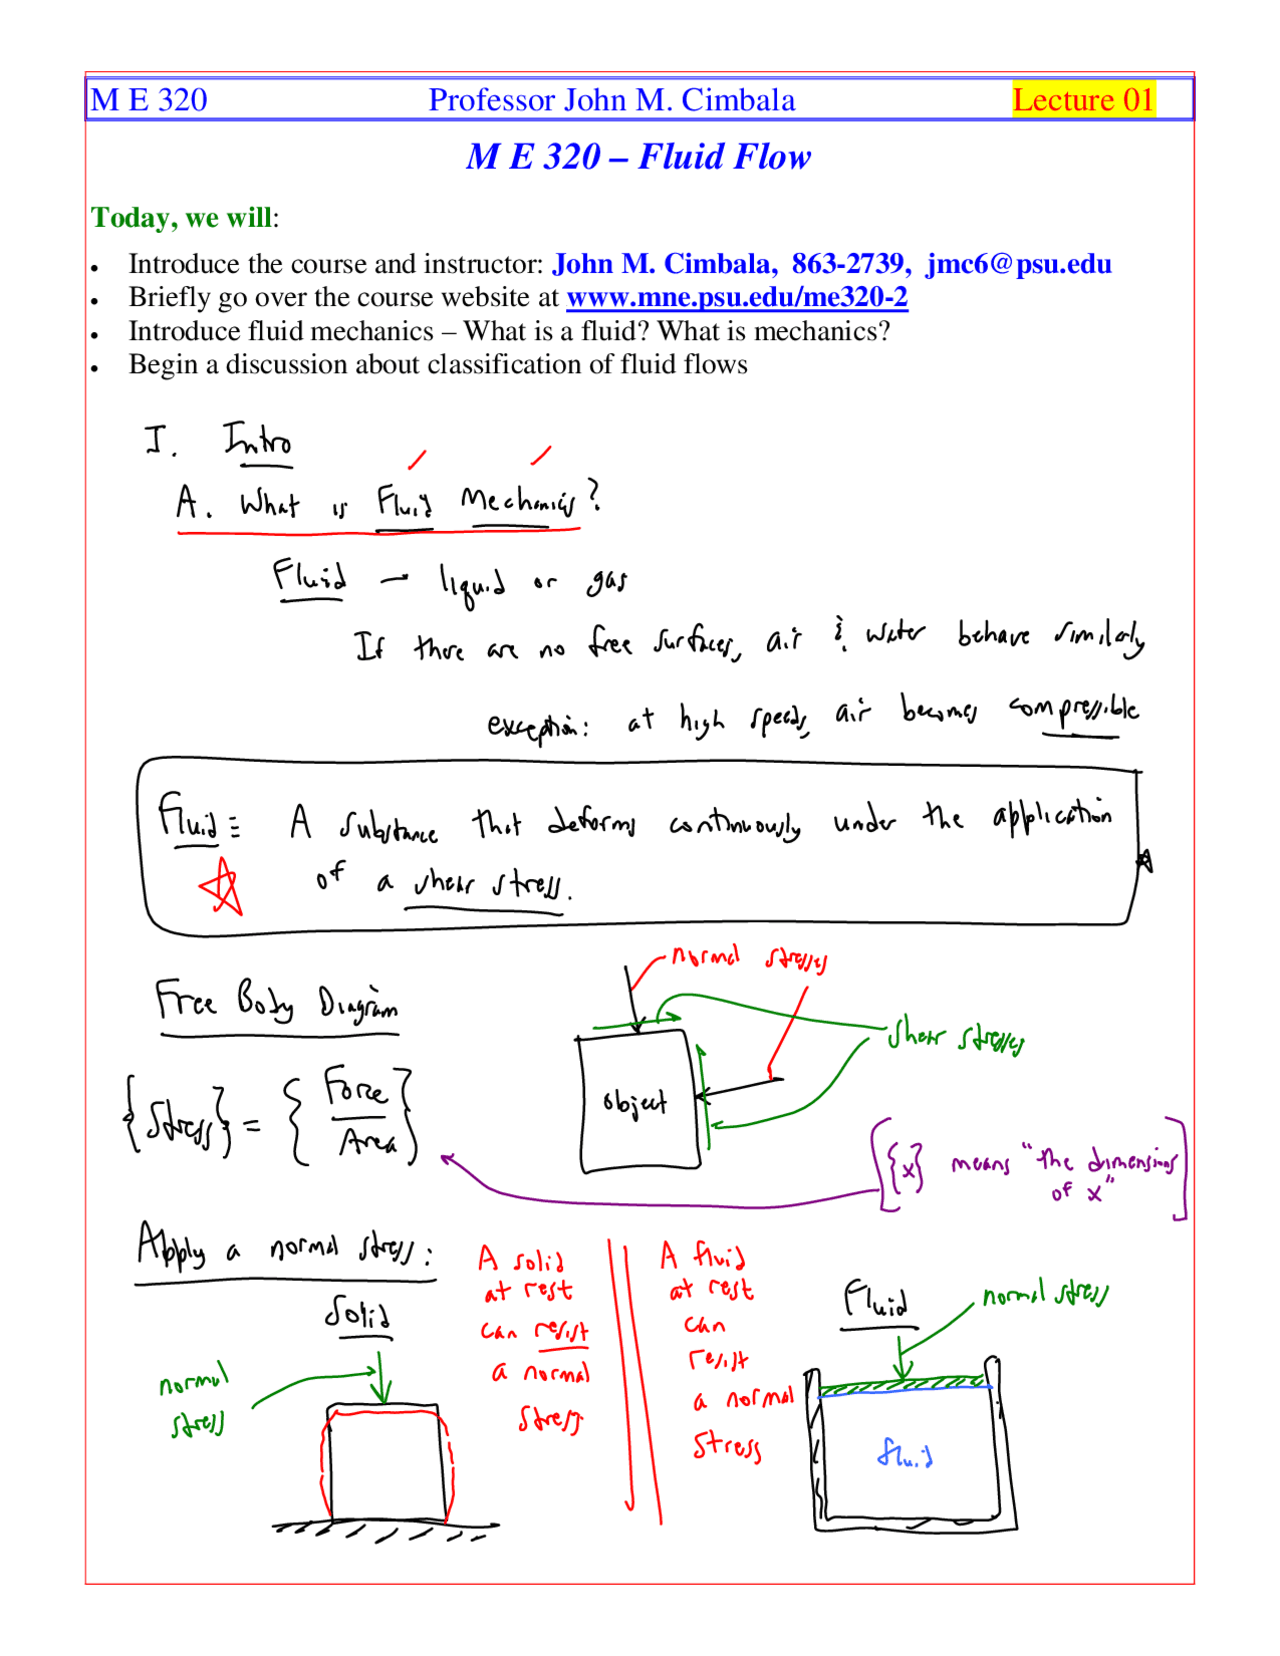 M E 320 Professor John M. Cimbala Lecture 01
M E 320 – Fluid Flow
Today, we will:
• Introduce the course and instructor: John M. Cimbala, 863-2739, jmc6@psu.edu
• Briefly go over the course website at www.mne.psu.edu/me320-2
• Introduce fluid mechanics – What is a fluid? What is mechanics?
• Begin a discussion about classification of fluid flows
I. Intro
A. What is Fluid Mechanics?
Fluid – liquid or gas
If there are no free surfaces, air & water behave similarly
exception: at high speeds, air becomes compressible
Fluid ≡ A substance that deforms continuously under the application
of a shear stress.
normal stresses
Free Body Diagram
shear stresses
object
{Stress} = {Force
Area}
[{x} means "the dimensions
of x"]
Apply a normal stress:
Solid
normal
stress
A solid
at rest
can resist
a normal
stress
A fluid
at rest
can
resist
a normal
stress
Fluid
normal stress
fluid